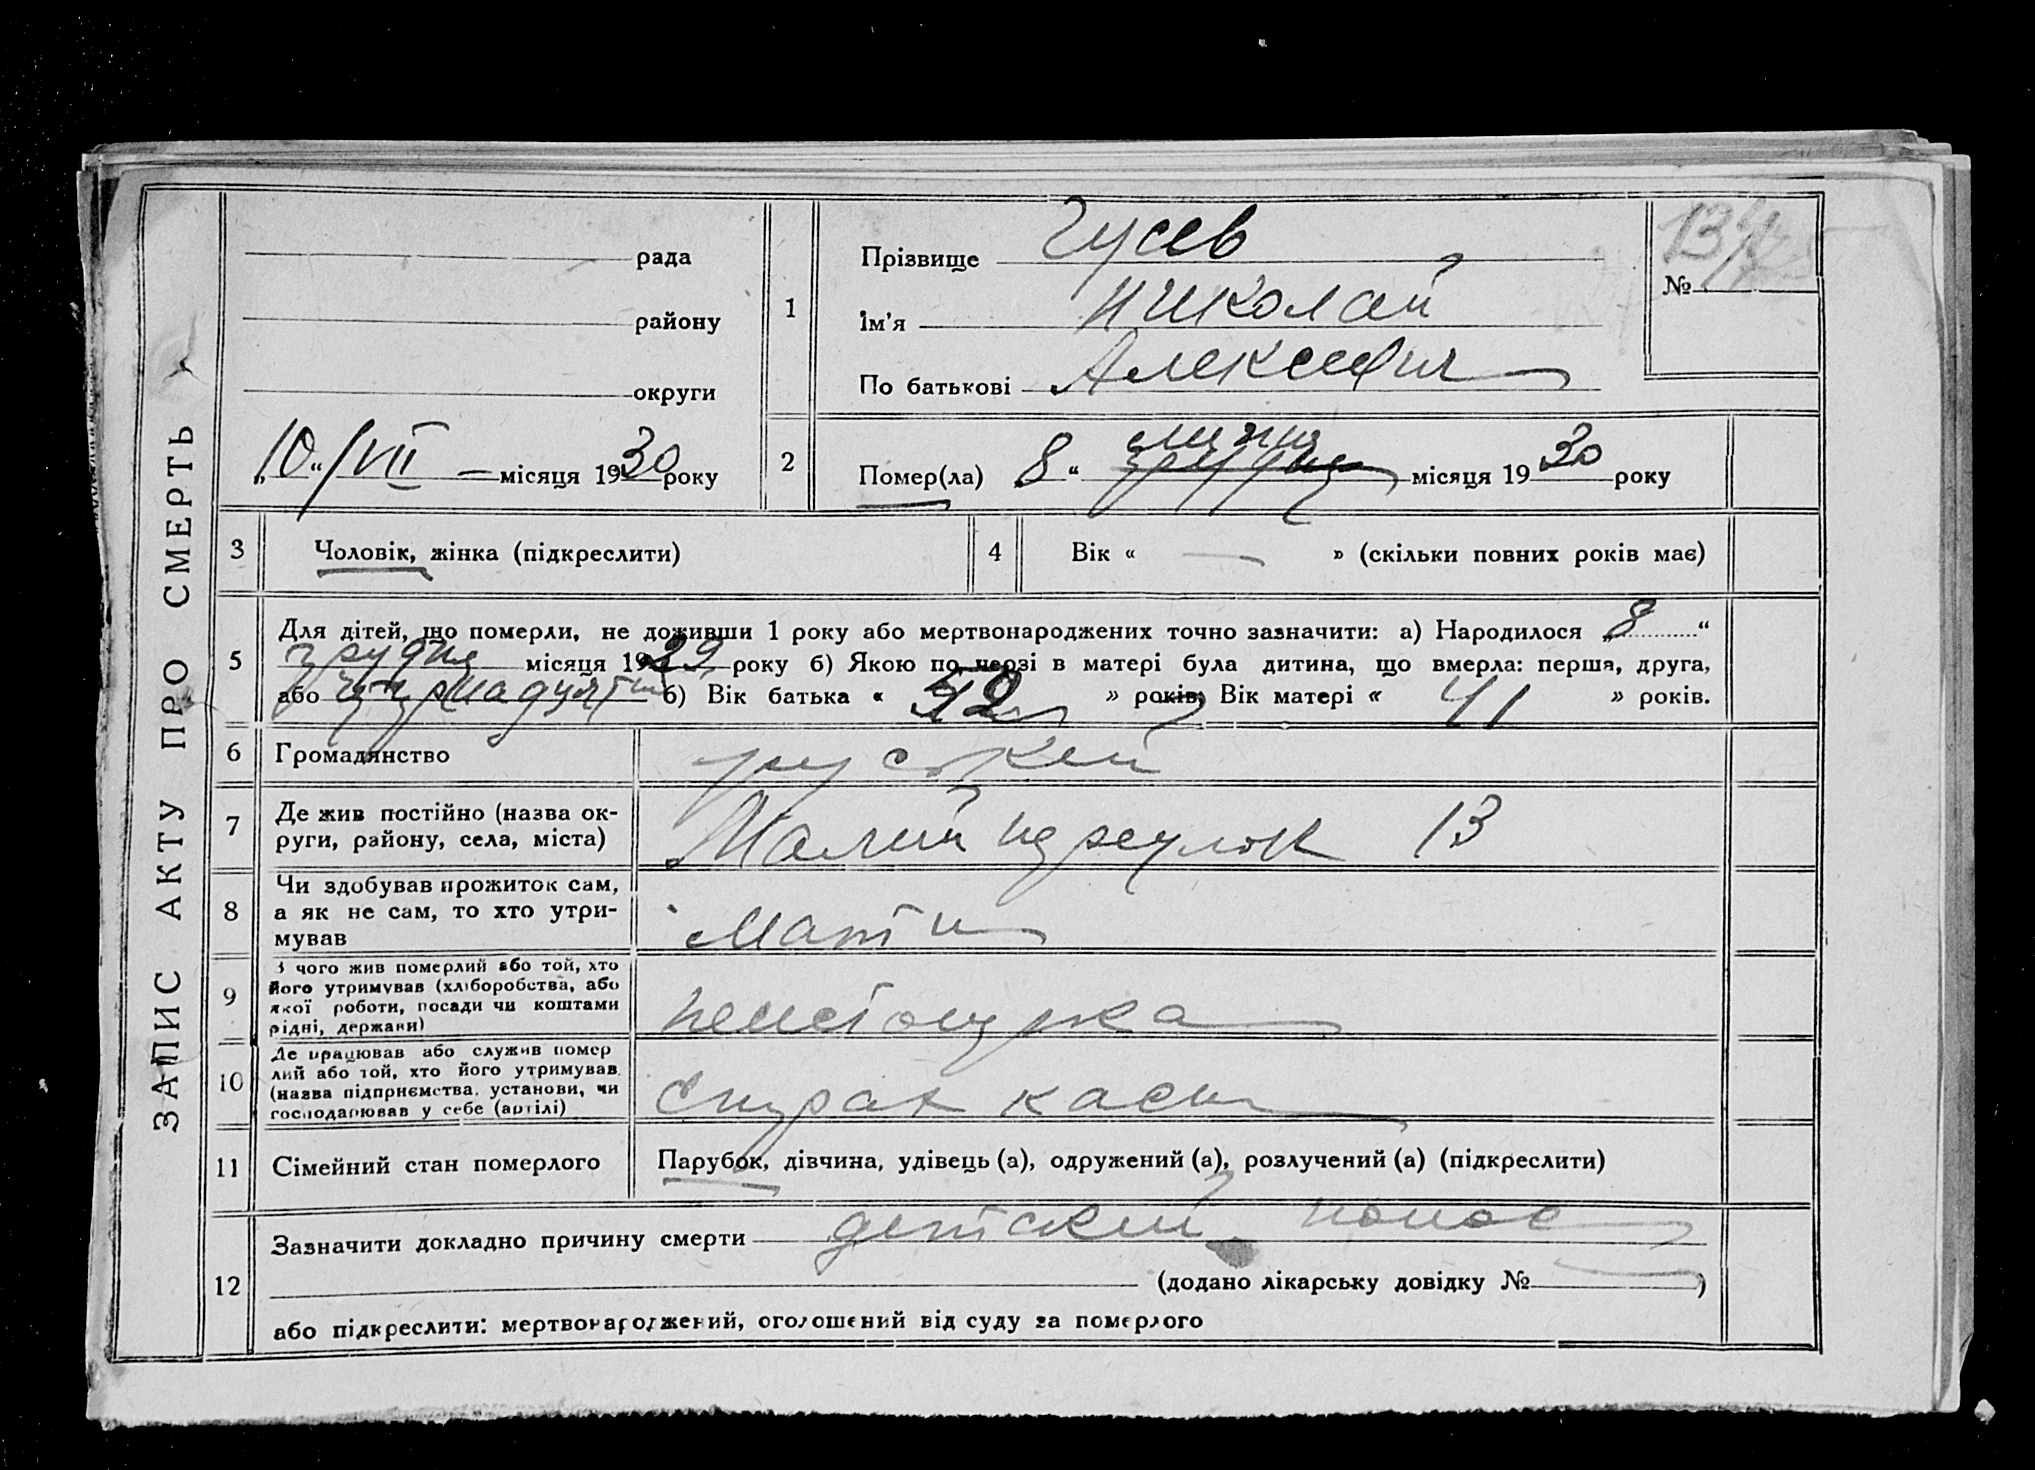 ЗАПИС АКТУ ПРО СМЕРТЬ
рада
району
округи
„10“ VII місяця 1930 року
1
Прізвище Гусев
Ім’я Николай
По батькові
№
2
Помер(ла) 8 “ липня місяця 1930 року
3
Чоловік, жінка (підкреслити)
4
Вік « — » (скільки повних років має)
5
Для дітей, що померли, не доживши 1 року або мертвонароджених точно зазначити: а) Народилося „8“
грудня місяця 1929 року б) Якою по черзі в матері була дитина, що вмерла: перша, друга,
або б) Вік батька « » років; Вік матері « 41 » років.
6
Громадянство руский
7
Де жив постійно (назва ок-
руги, району, села, міста)
Малий переулок 13
8
Чи здобував прожиток сам,
а як не сам, то хто утри-
мував
Мати
9
З чого жив померлий або той, хто
його утримував (хліборобства, або
якої роботи, посади чи коштами
рідні, держави)
10
Де працював або служив помер
лий або той, хто його утримував
(назва підприємства, установи, чи
господарював у себе (артілі)
11
Сімейний стан померлого
Парубок, дівчина, удівець (а), одружений (а), розлучений (а) (підкреслити)
12
Зазначити докладно причину смерти детский понос
(додано лікарську довідку № — )
або підкреслити: мертвонароджений, оголошений від суду за померлого